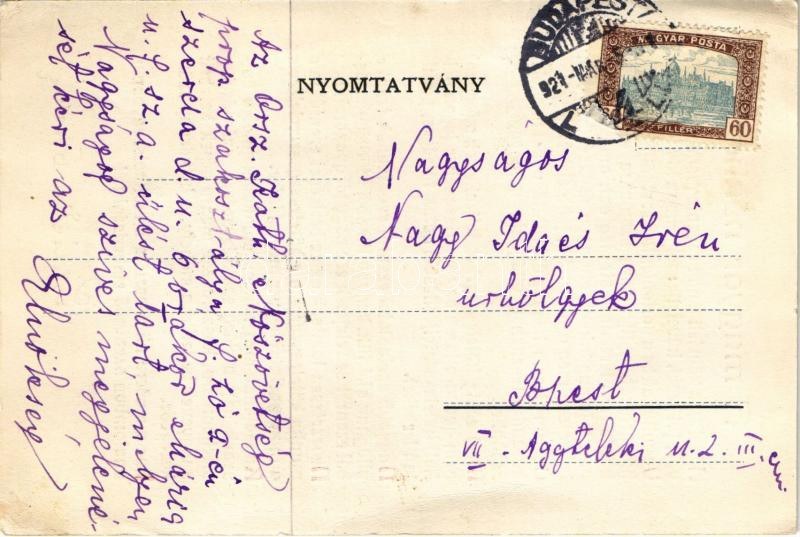 Az Orsz. Kath. Nőszövetség
prop szakosztálya f. hó 2-án
szerda d. u. 6 órakor
u. l. sz. a. ülést tart, melyen
Nagyságod szíves megjelené-
sét kéri az
Elnökség
NYOMTATVÁNY
BUDAPEST
921
MAGYAR POSTA
FILLÉR
60
Nagyságos
Nagy Ida és Irén
urhölgyek
Bpest
VII. Aggteleki u. 2. III. em.